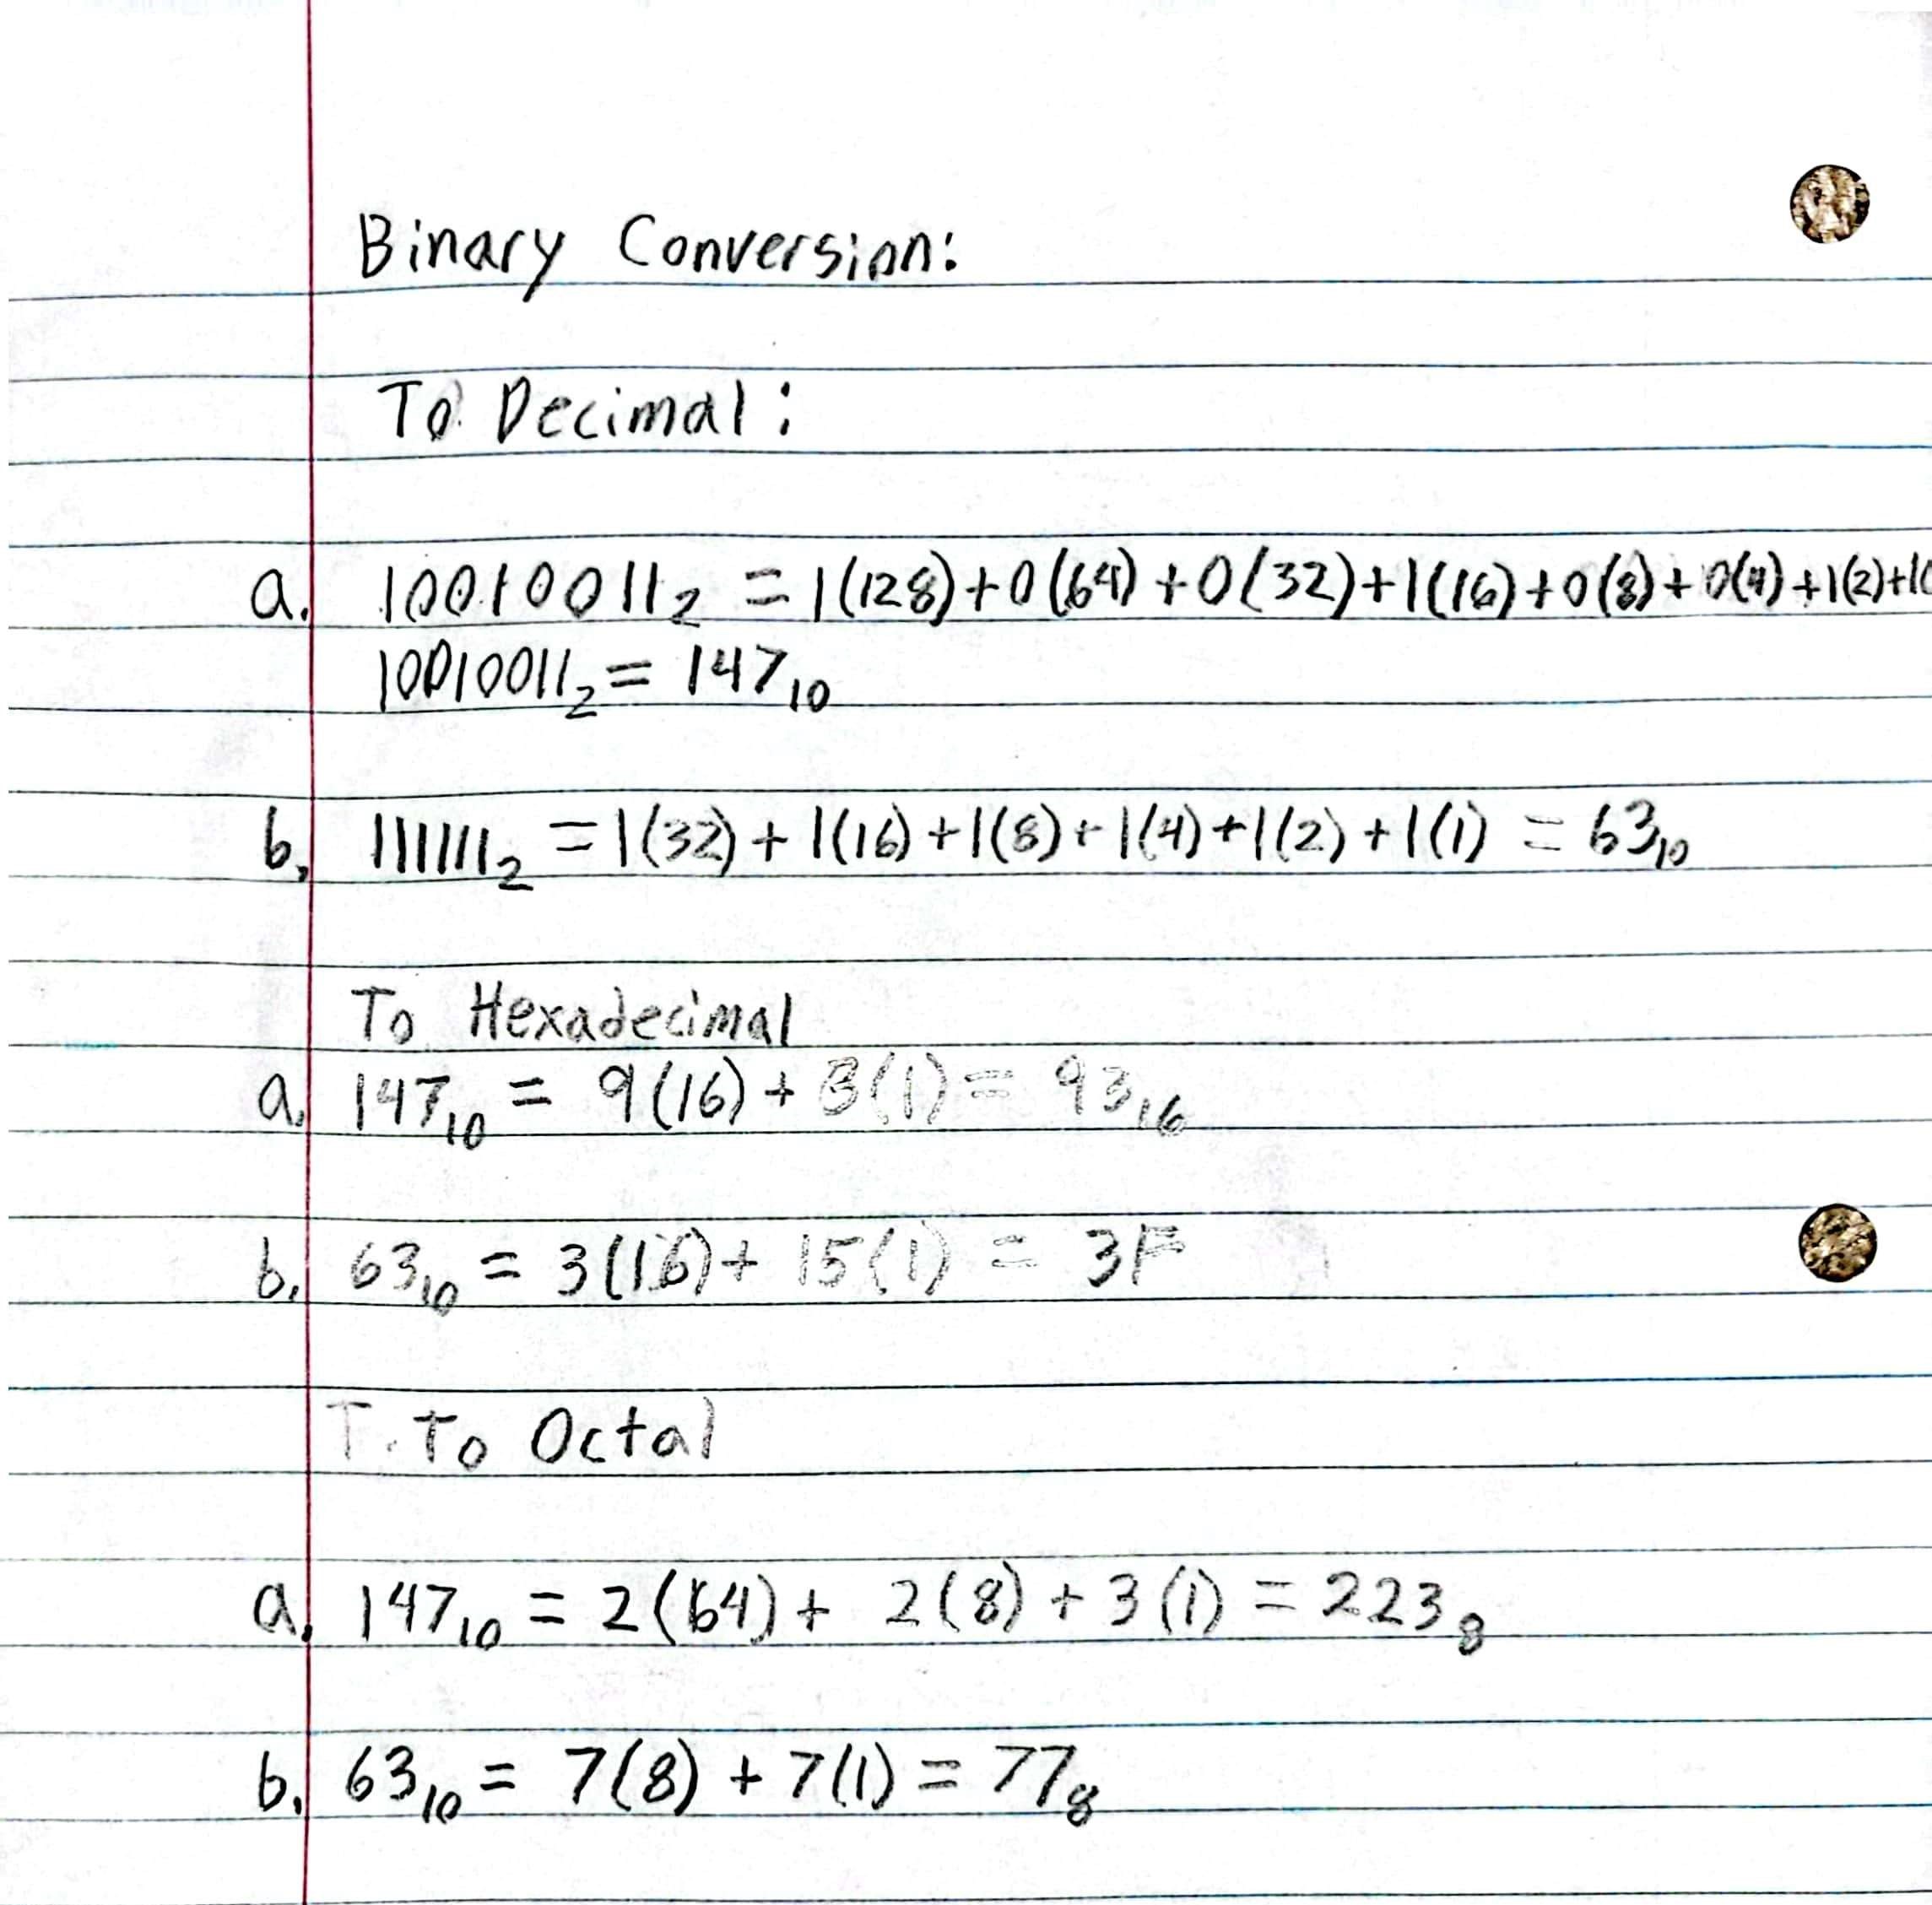 Binary Conversion:
To Decimal:
a. 10010011₂ = 1(128)+0(64)+0(32)+1(16)+0(8)+0(4)+1(2)+1(
10010011₂ = 147₁₀
b. 111111₂ = 1(32)+1(16)+1(8)+1(4)+1(2)+1(1) = 63₁₀
To Hexadecimal
a. 147₁₀ = 9(16)+3(1) = 93₁₆
b. 63₁₀ = 3(16)+15(1) = 3F
T. To Octal
a. 147₁₀ = 2(64)+2(8)+3(1) = 223₈
b. 63₁₀ = 7(8)+7(1) = 77₈